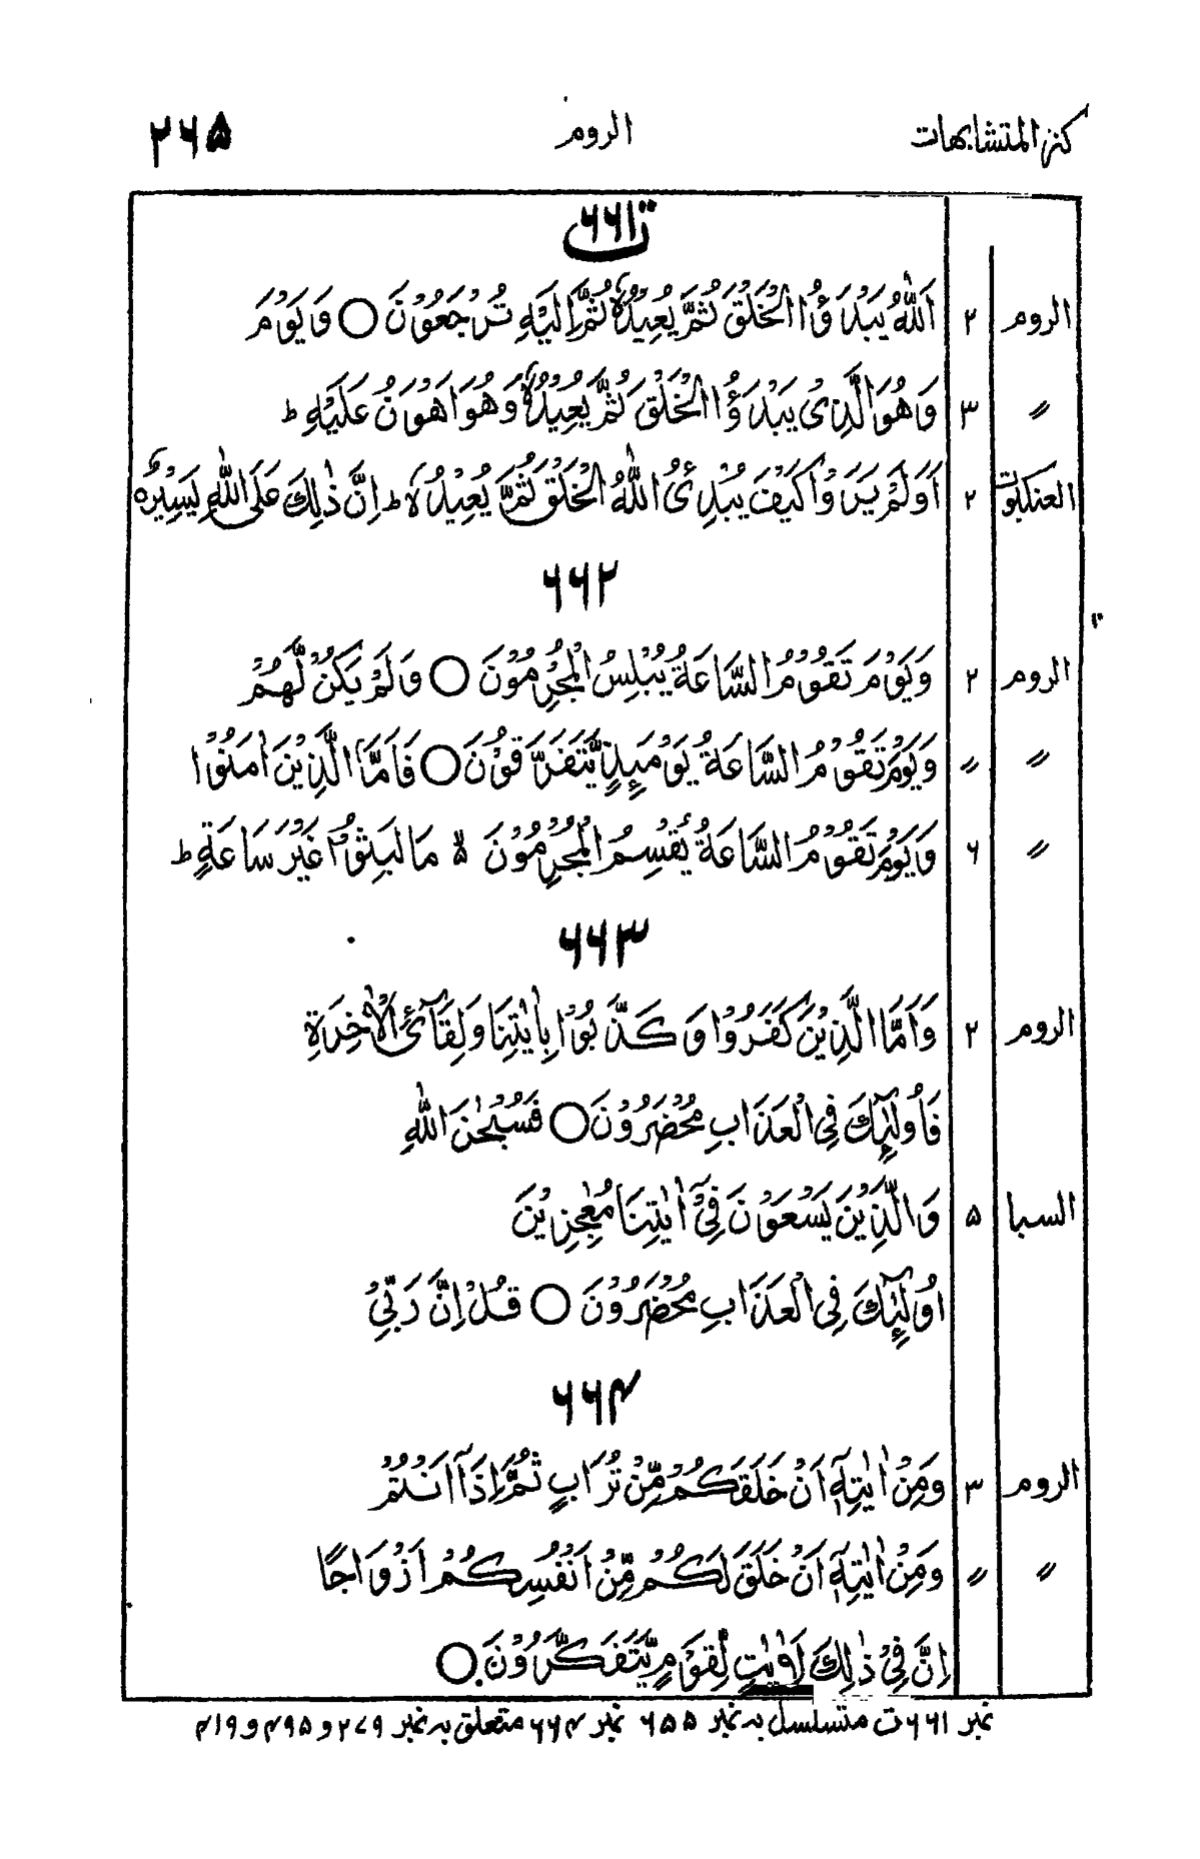 كنز المتشابهات الروم ۲۶۵
۶۶۱ ت
الروم ۲ اَللّٰهُ يَبْدَؤُا الْخَلْقَ ثُمَّ يُعِيْدُهٗ ثُمَّ اِلَيْهِ تُرْجَعُوْنَ ○ وَيَوْمَ
〃 ۳ وَهُوَ الَّذِىْ يَبْدَؤُا الْخَلْقَ ثُمَّ يُعِيْدُهٗ وَهُوَ اَهْوَنُ عَلَيْهِ ط
العنكبوت ۲ اَوَلَمْ يَرَوْا كَيْفَ يُبْدِئُ اللّٰهُ الْخَلْقَ ثُمَّ يُعِيْدُهٗ ط اِنَّ ذٰلِكَ عَلَى اللّٰهِ يَسِيْرٌ
۶۶۲
الروم ۲ وَيَوْمَ تَقُوْمُ السَّاعَةُ يُبْلِسُ الْمُجْرِمُوْنَ ○ وَلَمْ يَكُنْ لَّهُمْ
〃 〃 وَيَوْمَ تَقُوْمُ السَّاعَةُ يَوْمَئِذٍ يَّتَفَرَّقُوْنَ ○ فَاَمَّا الَّذِيْنَ اٰمَنُوْا
〃 ۶ وَيَوْمَ تَقُوْمُ السَّاعَةُ يُقْسِمُ الْمُجْرِمُوْنَ ۵ مَا لَبِثُوْا غَيْرَ سَاعَةٍ ط
۶۶۳
الروم ۲ وَاَمَّا الَّذِيْنَ كَفَرُوْا وَكَذَّبُوْا بِاٰيٰتِنَا وَلِقَآئِ الْاٰخِرَةِ
فَاُولٰٓئِكَ فِى الْعَذَابِ مُحْضَرُوْنَ ○ فَسُبْحٰنَ اللّٰهِ
السبا ۵ وَالَّذِيْنَ يَسْعَوْنَ فِىْٓ اٰيٰتِنَا مُعٰجِزِيْنَ
اُولٰٓئِكَ فِى الْعَذَابِ مُحْضَرُوْنَ ○ قُلْ اِنَّ رَبِّىْ
۶۶۴
الروم ۳ وَمِنْ اٰيٰتِهٖٓ اَنْ خَلَقَكُمْ مِّنْ تُرَابٍ ثُمَّ اِذَآ اَنْتُمْ
〃 〃 وَمِنْ اٰيٰتِهٖٓ اَنْ خَلَقَ لَكُمْ مِّنْ اَنْفُسِكُمْ اَزْوَاجًا
اِنَّ فِىْ ذٰلِكَ لَاٰيٰتٍ لِّقَوْمٍ يَّتَفَكَّرُوْنَ ○
نمبر ۶۶۱ ت متسلسل بہ نمبر ۶۵۵ نمبر ۶۶۴ متعلق بہ نمبر ۲۷۹ و ۴۹۵ و ۴۱۹